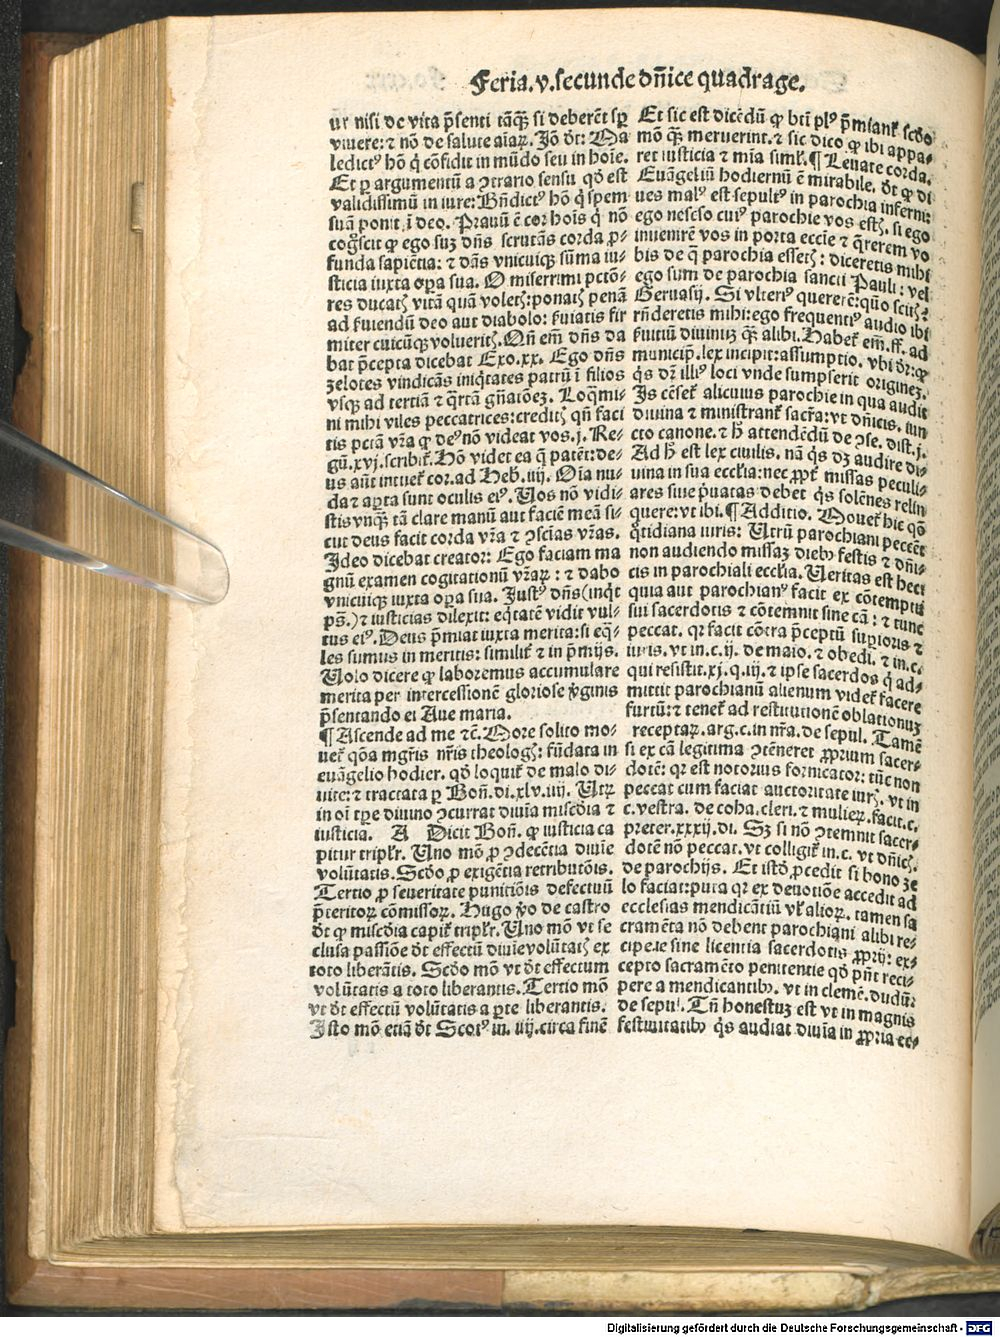 Feria.v.secunde dn̄ice quadrage.
ur nisi de vita p̄senti tāqꝫ si deberēt sꝑ
viuere: ⁊ nō de salute aīaꝝ. Jō d̄t: Ma
ledictꝰ hō q̇ cōfidit in mūdo seu in hoīe.
Et ꝑ argumentū a ꝯtrario sensu qd̓ est
validissimū in iure: Bn̄dictꝰ hō q̇ spem
suā ponit ī deo. Prauū ē cor hoīs q̇ nō
cogͦscit ꝙ ego suꝫ dn̄s scrutās corda ꝓ-
funda sapiētia: ⁊ dās vnicuiqꝫ sūma iu-
sticia iuxta oꝑa sua. O miserrimi pctō-
res ducatꝭ vitā quā voletꝭ: ponatꝭ penā
ad ẜuiendū deo aut diabolo: ẜuiatis fir
miter cuicūqꝫ volueritꝭ. Qn̄ em̄ dn̄s da
bat p̄cepta dicebat Exo.xx. Ego dn̄s
zelotes vindicās iniq̇tates patrū ī filios
vsqꝫ ad tertiā ⁊ q̄rtā gn̄atōeꝫ. Loq̄mi-
ni mihi viles peccatrices: creditꝭ qn̄ faci
tis pctā vr̄a ꝙ deꝰ nō videat vos.j. Re-
gū.xvj.scribit᷑. Hō videt ea q̄ patēt: de-
us aūt intuet᷑ cor. ad Heb. iiij. Oīa nu-
da ⁊ aꝑta sunt oculis eiꝰ. Uos nō vidi-
stis vnqꝫ tā clare manū aut faciē meā si-
cut deus facit corda vr̄a ⁊ ꝯsciās vr̄as.
Jdeo dicebat creator: Ego faciam ma
gnū examen cogitationū vr̄aꝝ: ⁊ dabo
vnicuiqꝫ iuxta oꝑa sua. Justꝰ dn̄s (inq̇t
ps̄.) ⁊ iusticias dilexit: eq̇tatē vidit vul-
tus eiꝰ. Deus p̄miat iuxta merita: si eq̄-
les sumus in meritis: similit᷑ ⁊ in p̄mijs.
Uolo dicere ꝙ laboremus accumulare
merita per intercessionē gloriose v̓ginis
p̄sentando ei Aue maria.
¶ Ascende ad me ⁊c̄. More solito mo-
uet᷑ qōa mgr̄is nr̄is theologꝭ: fūdata in
euāgelio hodier. qd̓ loquit᷑ de malo di-
uite: ⁊ tractata ꝑ Boñ.di.xlv.iiij. Utꝝ
in oī oꝑe diuino ꝯcurrat diuīa miscd̓ia ⁊
iusticia. A Dicit Boñ. ꝙ iusticia ca
pitur tripl̓r. Uno mō ꝓ ꝯdecētia diuie
volūtatis. Scd̓o ꝓ exigētia retributōis.
Tertio ꝓ seueritate punitiōis defectuū
p̄teritoꝝ cōmissoꝝ. Hugo v̓o de castro
d̄t ꝙ miscd̓ia capit᷑ tripl̓r. Uno mō vt se
clusa passiōe d̄t effectū diuie volūtatꝭ ex
toto liberātis. Scd̓o mō vt d̄t effectum
volūtatis a toto liberantis. Tertio mō
vt d̄t effectū volūtatis a ꝑte liberantis.
Jsto mō etiā d̄t Scotꝰ in. iiij.circa finē
Et sic est dicēdū ꝙ btī plꝰ p̄miant᷑ scd̓o
mō qꝫ meruerint. ⁊ sic dico ꝙ ibi appa-
ret iusticia ⁊ mīa siml̓. ¶ Leuate corda.
Euāgeliū hodiernū ē mirabile. d̄t ꝙ di
ues malꝰ est sepultꝰ in parochia inferni:
ego nescio cuiꝰ parochie vos estꝭ. si ego
inuenirē vos in porta eccīe ⁊ q̄rerem vo
bis de q̄ parochia essetꝭ: diceretis mihi
ego sum de parochia sancti Pauli: vel
Geruasij. Si vlteriꝰ quererē: quō scitꝭ?
rn̄deretis mihi: ego frequentiꝰ audio ibi
ẜuitiū diuinuꝫ qꝫ alibi. Habet᷑ em̄.ff. ad
municip̄. lex incipit: assumptio. vbi d̄r: ꝙ
q̇s dꝫ illiꝰ loci vnde sumpserit origineꝫ.
Js cēset᷑ alicuius parochie in qua audit
diuina ⁊ ministrant᷑ sacr̄a: vt dn̄icis. iun
cto canone. ⁊ ꝧ attendēdū de ꝯse. dist.j.
Ad ꝧ est lex ciuilis. nā q̇s dꝫ audire di-
uina in sua eccl̓ia: nec ꝓpt᷑ missas peculi-
ares siue p̓uatas debet q̇s solēnes relin
quere: vt ibi. ¶ Additio. Mouet᷑ hic qō
q̇tidiana iuris: Utrū parochiani peccēt
non audiendo missaꝫ diebꝰ festis ⁊ dn̄i-
cis in parochiali eccl̓ia. Ueritas est hec:
quia aut parochianꝰ facit ex cōtemptu
sui sacerdotis ⁊ cōtemnit sine cā: ⁊ tunc
peccat. qr facit cōtra p̄ceptū suꝑioris ⁊
iuris. vt in.c.ij. de maio. ⁊ obedi. ⁊ in.c.
qui resistit.xj.q.iij. ⁊ ipse sacerdos q̇ ad-
mittit parochianū alienum videt᷑ facere
furtū: ⁊ tenet᷑ ad restitutionē oblationuꝫ
receptaꝝ. arg.c.in nr̄a. de sepul. Tamē
si ex cā legitima ꝯtēneret ꝓprium sacer-
dotē: qr est notorius fornicator: tūc non
peccat cum faciat auctoritate iurꝭ. vt in
c. vestra. de coha.cleri. ⁊ mulieꝝ. facit.c.
preter.xxxij.di. Sꝫ si nō ꝯtemnit sacer-
dotē nō peccat. vt colligit᷑ in.c. vt dn̄icꝭ.
de parochijs. Et istd̓ ꝓcedit si bono ze
lo faciat: puta qr ex deuotiōe accedit ad
ecclesias mendicātiū vl̓ alioꝝ. tamen sa
cramēta nō debent parochiani alibi re-
cipere sine licentia sacerdotis ꝓprij: ex-
cepto sacramēto penitentie qd̓ pn̄t reci-
pere a mendicantibꝰ. vt in clemē. dudū:
de sepul. Tn̄ honestuꝫ est vt in magnis
festiuitatibꝰ q̇s audiat diuīa in ꝓpria ec-
Digitalisierung gefördert durch die Deutsche Forschungsgemeinschaft - DFG